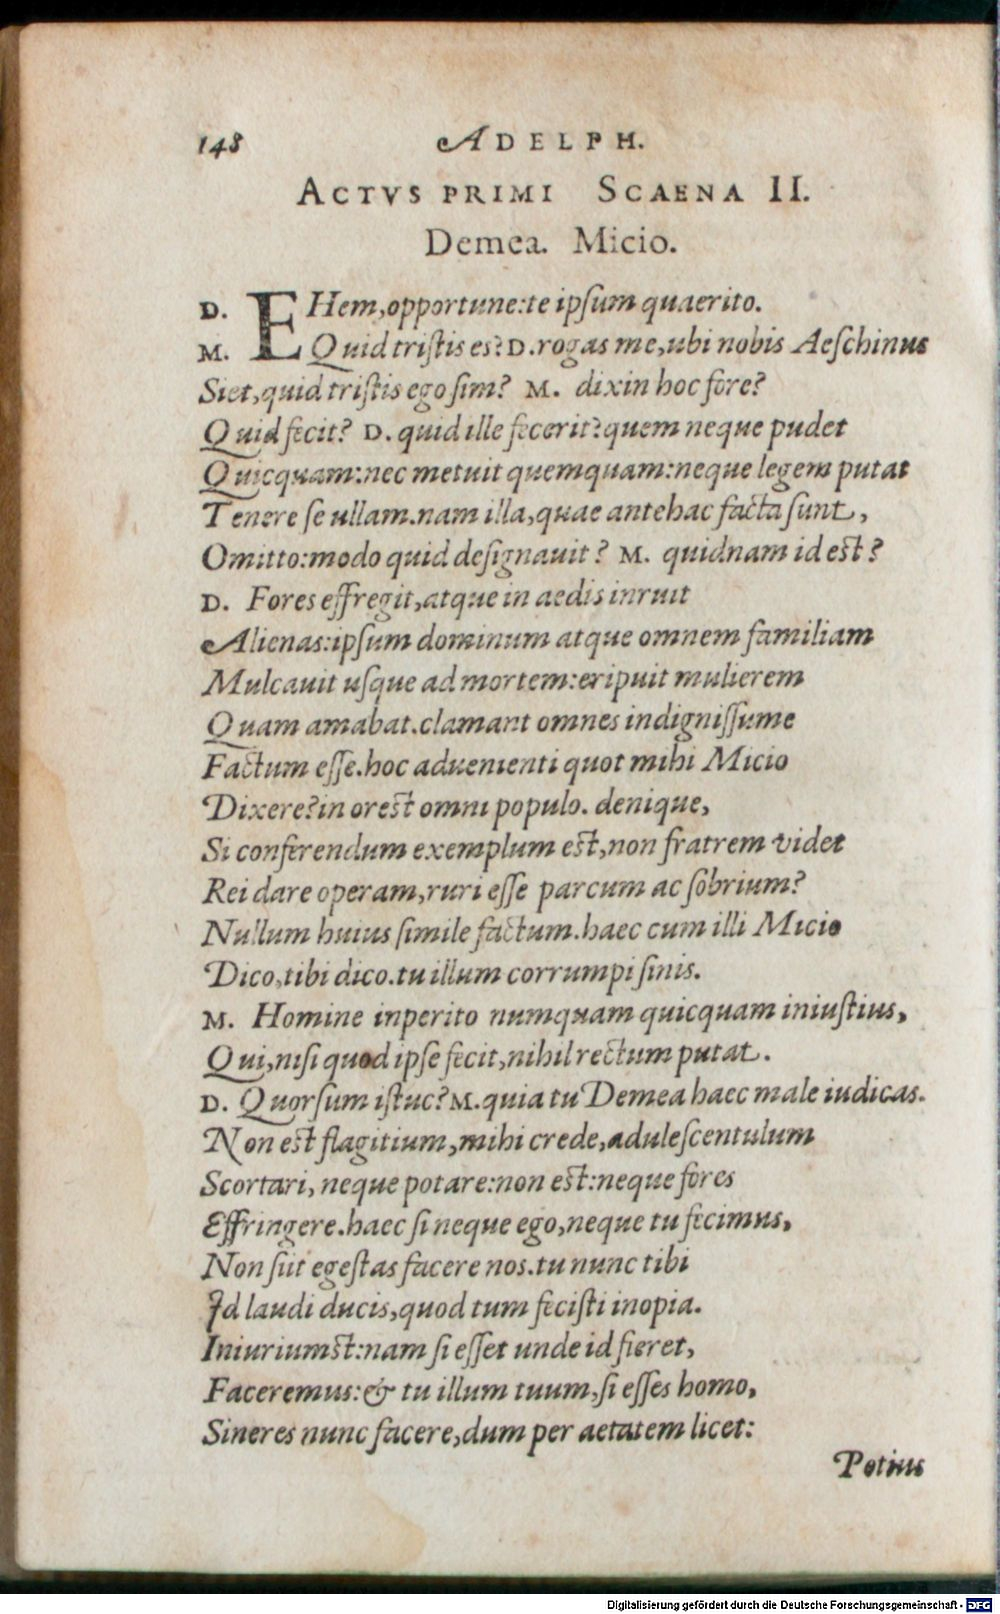 148 ADELPH.
ACTVS PRIMI SCAENA II.
Demea. Micio.
D. EHem,opportune:te ipſum quaerito.
M. Quid triſtis es? D. rogas me,ubi nobis Aeſchinus
Siet,quid triſtis ego ſim? M. dixin hoc fore?
Quid fecit? D. quid ille fecerit?quem neque pudet
Quicquam:nec metuit quemquam:neque legem putat
Tenere ſe ullam.nam illa,quae antehac facta ſunt,
Omitto:modo quid deſignauit? M. quidnam id eſt?
D. Fores effregit,atque in aedis inruit
Alienas:ipſum dominum atque omnem familiam
Mulcauit uſque ad mortem:eripuit mulierem
Quam amabat.clamant omnes indigniſſume
Factum eſſe.hoc aduenienti quot mihi Micio
Dixere?in oreſt omni populo. denique,
Si conferendum exemplum eſt,non fratrem videt
Rei dare operam,ruri eſſe parcum ac ſobrium?
Nullum huius ſimile factum.haec cum illi Micio
Dico,tibi dico.tu illum corrumpi ſinis.
M. Homine inperito numquam quicquam iniuſtius,
Qui,niſi quod ipſe fecit,nihil rectum putat.
D. Quorſum iſtuc? M. quia tu Demea haec male iudicas.
Non eſt flagitium,mihi crede,aduleſcentulum
Scortari, neque potare:non eſt:neque fores
Effringere.haec ſi neque ego,neque tu fecimus,
Non ſiit egeſtas facere nos.tu nunc tibi
Id laudi ducis,quod tum feciſti inopia.
Iniuriumſt:nam ſi eſſet unde id fieret,
Faceremus:& tu illum tuum,ſi eſſes homo,
Sineres nunc facere,dum per aetatem licet:
Potius
Digitalisierung gefördert durch die Deutsche Forschungsgemeinschaft - DFG